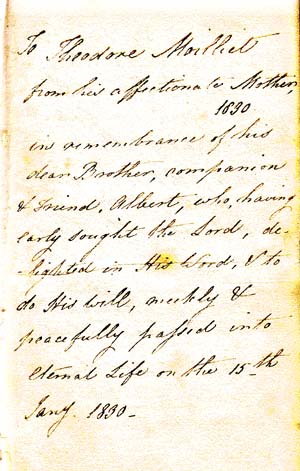 To Theodore Moilliet
from his affectionate Mother,
1830
in remembrance of his
dear Brother, companion
& Friend, Albert, who, having
early sought the Lord, de-
-lighted in His Word, & to
do His will, meekly &
peacefully passed into
Eternal Life on the 15th
Jany. 1830-